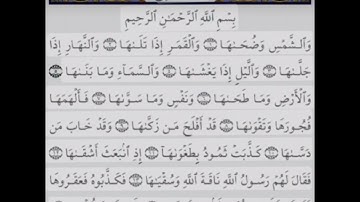 بِسْمِ ٱللَّهِ ٱلرَّحْمَـٰنِ ٱلرَّحِيمِ
وَٱلشَّمْسِ وَضُحَىٰهَا ۝١ وَٱلْقَمَرِ إِذَا تَلَىٰهَا ۝٢ وَٱلنَّهَارِ إِذَا
جَلَّىٰهَا ۝٣ وَٱلَّيْلِ إِذَا يَغْشَىٰهَا ۝٤ وَٱلسَّمَآءِ وَمَا بَنَىٰهَا ۝٥
وَٱلْأَرْضِ وَمَا طَحَىٰهَا ۝٦ وَنَفْسٍ وَمَا سَوَّىٰهَا ۝٧ فَأَلْهَمَهَا
فُجُورَهَا وَتَقْوَىٰهَا ۝٨ قَدْ أَفْلَحَ مَن زَكَّىٰهَا ۝٩ وَقَدْ خَابَ مَن
دَسَّىٰهَا ۝١٠ كَذَّبَتْ ثَمُودُ بِطَغْوَىٰهَآ ۝١١ إِذِ ٱنۢبَعَثَ أَشْقَىٰهَا ۝١٢
فَقَالَ لَهُمْ رَسُولُ ٱللَّهِ نَاقَةَ ٱللَّهِ وَسُقْيَـٰهَا ۝١٣ فَكَذَّبُوهُ فَعَقَرُوهَا